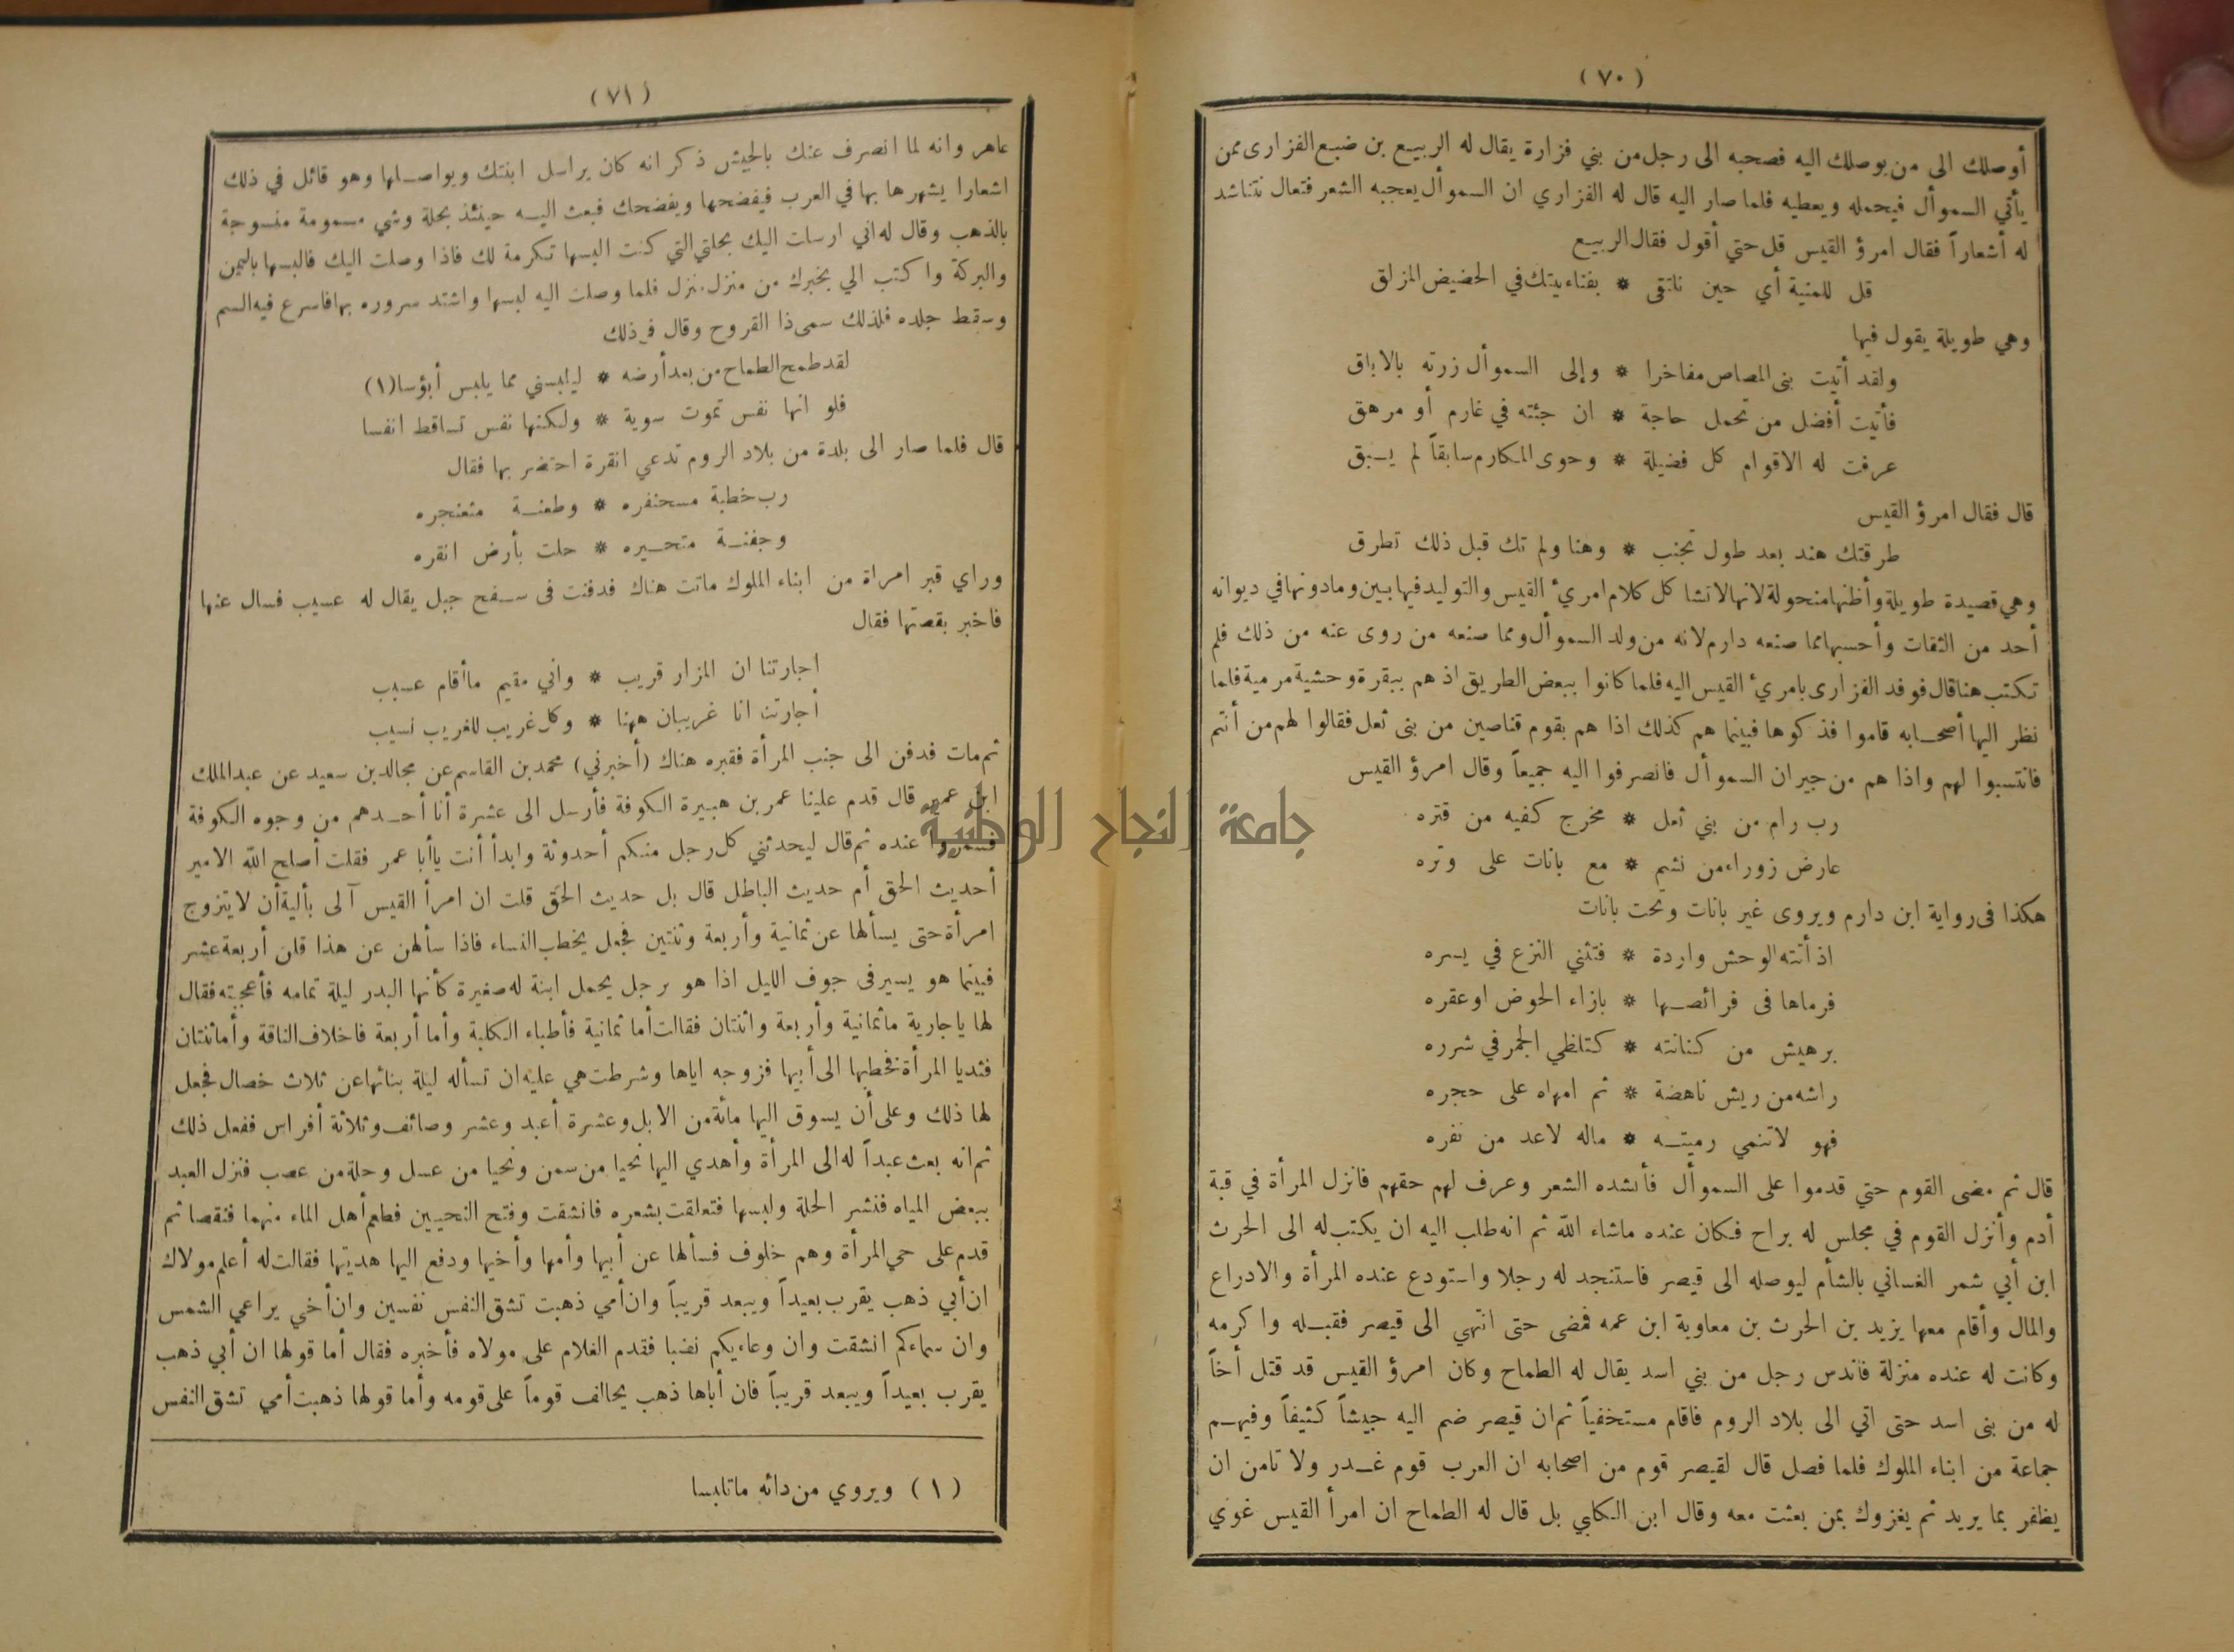 (٧٠)
أوصلك الى من يوصلك اليه فصحبه الى رجل من بني فزارة يقال له الربيع بن ضبع الفزارى ممن
يأتي السموأل فيحمله ويعطيه فلما صار اليه قال له الفزاري ان السموأل يعجبه الشعر فتعال نتناشد
له أشعاراً فقال امرؤ القيس قل حتي أقول فقال الربيع
قل للمنية أي حين نلتقى * بفناء بيتك في الحضيض المزلق
وهي طويلة يقول فيها
ولقد أتيت بنى المصاص مفاخرا * وإلى السموأل زرته بالابلق
فأتيت أفضل من تحمل حاجة * ان جئته في غارم أو مرهق
عرفت له الاقوام كل فضيلة * وحوى المكارم سابقاً لم يسبق
قال فقال امرؤ القيس
طرقتك هند بعد طول تجنب * وهنا ولم تك قبل ذلك تطرق
وهي قصيدة طويلة وأظنها منحولة لانها لا تشاكل كلام امرئ القيس والتوليد فيها بين وما دونها في ديوانه
أحد من الثقات وأحسبها مما صنعه دارم لانه من ولد السموأل ومما صنعه من روى عنه من ذلك فلم
تكتب هنا قال فوفد الفزارى بامرئ القيس اليه فلما كانوا ببعض الطريق اذ هم ببقرة وحشية مرمية فلما
نظر اليها أصحابه قاموا فذكوها فبينما هم كذلك اذا هم بقوم قناصين من بنى ثعل فقالوا لهم من أنتم
فانتسبوا لهم واذا هم من جيران السموأل فانصرفوا اليه جميعاً وقال امرؤ القيس
رب رام من بني ثعل * مخرج كفيه من قتره
عارض زوراء من نشم * مع بانات على وتره
هكذا فى رواية ابن دارم ويروى غير بانات وتحت بانات
اذ أتته الوحش واردة * فتثني النزع في يسره
فرماها فى فرائصها * بازاء الحوض او عقره
برهيش من كنانته * كتلظي الجمر في شرره
راشه من ريش ناهضة * ثم امهاه على حجره
فهو لا تنمي رميته * ماله لا عد من نفره
قال ثم مضى القوم حتي قدموا على السموأل فأنشده الشعر وعرف لهم حقهم فانزل المرأة في قبة
أدم وأنزل القوم في مجلس له براح فكان عنده ماشاء الله ثم انه طلب اليه ان يكتب له الى الحرث
ابن أبي شمر الغساني بالشأم ليوصله الى قيصر فاستنجد له رجلا واستودع عنده المرأة والادراع
والمال وأقام معها يزيد بن الحرث بن معاوية ابن عمه فمضى حتى انتهي الى قيصر فقبله واكرمه
وكانت له عنده منزلة فاندس رجل من بني اسد يقال له الطماح وكان امرؤ القيس قد قتل أخاً
له من بنى اسد حتى اتي الى بلاد الروم فاقام مستخفياً ثم ان قيصر ضم اليه جيشاً كثيفاً وفيهم
جماعة من ابناء الملوك فلما فصل قال لقيصر قوم من اصحابه ان العرب قوم غدر ولا تامن ان
يظفر بما يريد ثم يغزوك بمن بعثت معه وقال ابن الكلبي بل قال له الطماح ان امرأ القيس غوي
(٧١)
عاهر وانه لما انصرف عنك بالجيش ذكر انه كان يراسل ابنتك ويواصلها وهو قائل في ذلك
اشعارا يشهرها بها في العرب فيفضحها ويفضحك فبعث اليه حينئذ بحلة وشي مسمومة منسوجة
بالذهب وقال له اني ارسلت اليك بحلتي التي كنت البسها تكرمة لك فاذا وصلت اليك فالبسها باليمن
والبركة واكتب الي بخبرك من منزل منزل فلما وصلت اليه لبسها واشتد سروره بها فاسرع فيه السم
وسقط جلده فلذلك سمى ذا القروح وقال في ذلك
لقد طمح الطماح من بعد أرضه * ليلبسني مما يلبس أبؤسا (١)
فلو انها نفس تموت سوية * ولكنها نفس تساقط انفسا
قال فلما صار الى بلدة من بلاد الروم تدعي انقرة احتضر بها فقال
رب خطبة مسحنفره * وطعنة مثعنجره
وجفنة متحيره * حلت بأرض انقره
وراي قبر امراة من ابناء الملوك ماتت هناك فدفنت فى سفح جبل يقال له عسيب فسال عنها
فاخبر بقصتها فقال
اجارتنا ان المزار قريب * واني مقيم ما أقام عسيب
أجارتنا انا غريبان ههنا * وكل غريب للغريب نسيب
ثم مات فدفن الى جنب المرأة فقبره هناك (أخبرني) محمد بن القاسم عن مجالد بن سعيد عن عبد الملك
ابن عمير قال قدم علينا عمر بن هبيرة الكوفة فأرسل الى عشرة أنا أحدهم من وجوه الكوفة
فسمروا عنده ثم قال ليحدثني كل رجل منكم أحدوثة وابدأ أنت يا أبا عمر فقلت أصلح الله الامير
أحديث الحق أم حديث الباطل قال بل حديث الحق قلت ان امرأ القيس آلى بألية أن لا يتزوج
امرأة حتى يسألها عن ثمانية وأربعة وثنتين فجعل يخطب النساء فاذا سألهن عن هذا قلن أربعة عشر
فبينما هو يسير فى جوف الليل اذا هو برجل يحمل ابنة له صغيرة كأنها البدر ليلة تمامه فأعجبته فقال
لها يا جارية ما ثمانية وأربعة واثنتان فقالت أما ثمانية فأطباء الكلبة وأما أربعة فاخلاف الناقة وأما ثنتان
فثديا المرأة فخطبها الى أبيها فزوجه اياها وشرطت هي عليه ان تسأله ليلة بنائها عن ثلاث خصال فجعل
لها ذلك وعلى أن يسوق اليها مائة من الابل وعشرة أعبد وعشر وصائف وثلاثة أفراس ففعل ذلك
ثم انه بعث عبداً له الى المرأة وأهدي اليها نحيا من سمن ونحيا من عسل وحلة من عصب فنزل العبد
ببعض المياه فنشر الحلة ولبسها فتعلقت بشعره فانشقت وفتح النحيين فطعم أهل الماء منهما فنقصا ثم
قدم على حي المرأة وهم خلوف فسألها عن أبيها وأمها وأخيها ودفع اليها هديتها فقالت له أعلم مولاك
ان أبي ذهب يقرب بعيداً ويبعد قريباً وان أمي ذهبت تشق النفس نفسين وان أخي يراعي الشمس
وان سماءكم انشقت وان وعاءيكم نضبا فقدم الغلام على مولاه فأخبره فقال أما قولها ان أبي ذهب
يقرب بعيداً ويبعد قريباً فان أباها ذهب يحالف قوماً على قومه وأما قولها ذهبت أمي تشق النفس
(١) ويروي من دائه ما تلبسا
جامعة النجاح الوطنية